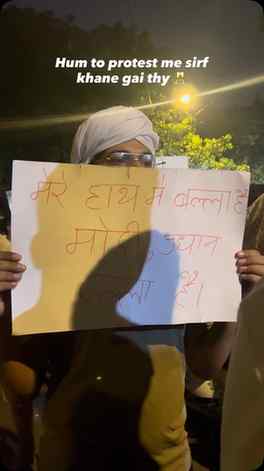 Hum to protest me sirf
khane gai thy
मेरे हाथ में बल्ला है
मोदी
है।